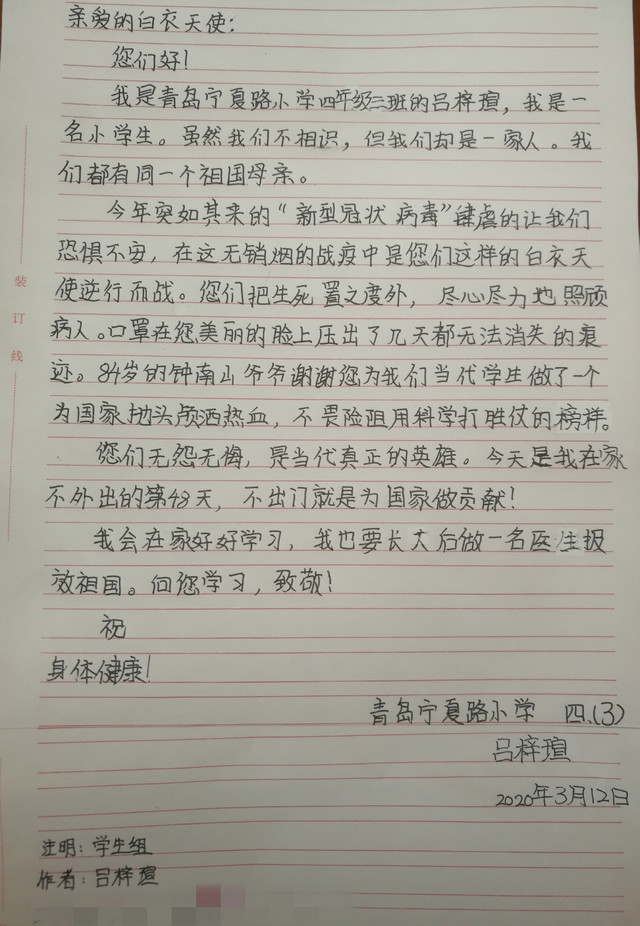 亲爱的白衣天使:
您们好!
我是青岛宁夏路小学四年级三班的吕梓瑄，我是一
名小学生。虽然我们不相识，但我们却是一家人。我
们都有同一个祖国母亲。
今年突如其来的“新型冠状病毒”肆虐的让我们
恐惧不安，在这无销烟的战疫中是您们这样的白衣天
使逆行而战。您们把生死置之度外，尽心尽力地照顾
病人。口罩在您美丽的脸上压出了几天都无法消失的衰
迹。84岁的钟南山爷爷谢谢您为我们当代学生做了一个
为国家抛头颅洒热血，不畏险阻用科学打胜仗的榜样。
您们无怨无悔，是当代真正的英雄。今天是我在家
不外出的第48天，不出门就是为国家做贡献!
我会在家好好学习，我也要长大后做一名医生报
效祖国。向您学习，致敬!
祝
身体健康!
青岛宁夏路小学 四.(3)
吕梓瑄
2020年3月12日
注明：学生组
作者：吕梓瑄
装
订
线